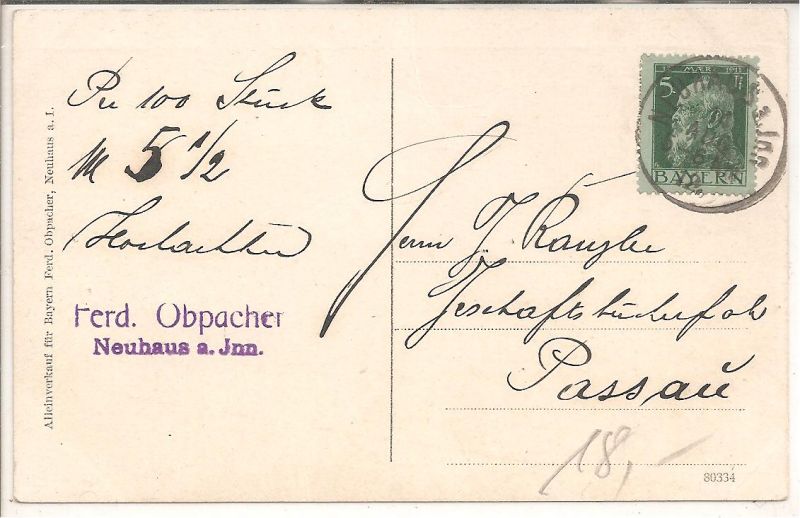 Alleinverkauf für Bayern Ferd. Obpacher, Neuhaus a. I.
Per 100 Stück
M 5 1/2
Hochachtend
Ferd. Obpacher
Neuhaus a. Jnn.
MAER 1911
5 Pf
BAYERN
Neuhaus a. Jnn
Herrn J.
Geschäftsbücherfabk
Passau
18,-
80334